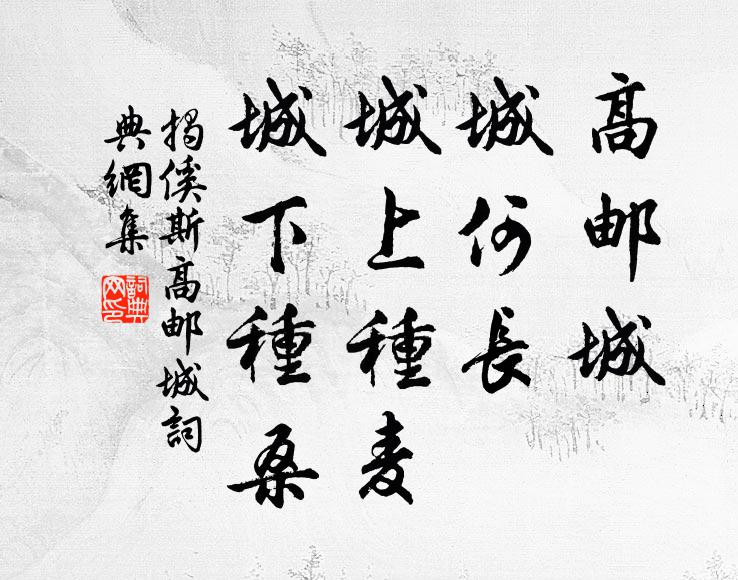 高邮城
城何長
城上種麦
城下種桑
揭傒斯高邮城詞
典網集
詞典網印